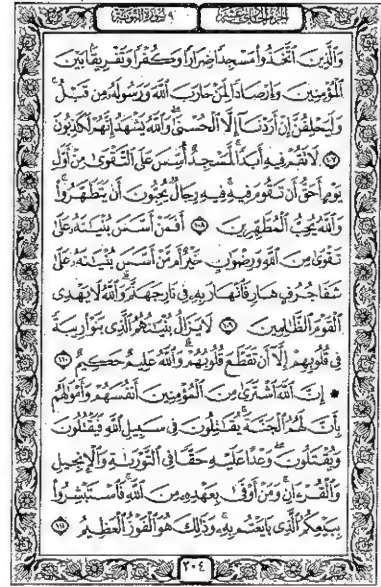 الجزء الحادي عشر ٩ سورة التوبة
وَٱلَّذِينَ ٱتَّخَذُوا۟ مَسْجِدًا ضِرَارًا وَكُفْرًا وَتَفْرِيقًۢا بَيْنَ
ٱلْمُؤْمِنِينَ وَإِرْصَادًا لِّمَنْ حَارَبَ ٱللَّهَ وَرَسُولَهُۥ مِن قَبْلُ ۚ
وَلَيَحْلِفُنَّ إِنْ أَرَدْنَآ إِلَّا ٱلْحُسْنَىٰ ۖ وَٱللَّهُ يَشْهَدُ إِنَّهُمْ لَكَٰذِبُونَ
١٠٧ لَا تَقُمْ فِيهِ أَبَدًا ۚ لَّمَسْجِدٌ أُسِّسَ عَلَى ٱلتَّقْوَىٰ مِنْ أَوَّلِ
يَوْمٍ أَحَقُّ أَن تَقُومَ فِيهِ ۚ فِيهِ رِجَالٌ يُحِبُّونَ أَن يَتَطَهَّرُوا۟ ۚ
وَٱللَّهُ يُحِبُّ ٱلْمُطَّهِّرِينَ ١٠٨ أَفَمَنْ أَسَّسَ بُنْيَٰنَهُۥ عَلَىٰ
تَقْوَىٰ مِنَ ٱللَّهِ وَرِضْوَٰنٍ خَيْرٌ أَم مَّنْ أَسَّسَ بُنْيَٰنَهُۥ عَلَىٰ
شَفَا جُرُفٍ هَارٍ فَٱنْهَارَ بِهِۦ فِى نَارِ جَهَنَّمَ ۗ وَٱللَّهُ لَا يَهْدِى
ٱلْقَوْمَ ٱلظَّٰلِمِينَ ١٠٩ لَا يَزَالُ بُنْيَٰنُهُمُ ٱلَّذِى بَنَوْا۟ رِيبَةً
فِى قُلُوبِهِمْ إِلَّآ أَن تَقَطَّعَ قُلُوبُهُمْ ۗ وَٱللَّهُ عَلِيمٌ حَكِيمٌ ١١٠
* إِنَّ ٱللَّهَ ٱشْتَرَىٰ مِنَ ٱلْمُؤْمِنِينَ أَنفُسَهُمْ وَأَمْوَٰلَهُم
بِأَنَّ لَهُمُ ٱلْجَنَّةَ ۚ يُقَٰتِلُونَ فِى سَبِيلِ ٱللَّهِ فَيَقْتُلُونَ
وَيُقْتَلُونَ ۖ وَعْدًا عَلَيْهِ حَقًّا فِى ٱلتَّوْرَىٰةِ وَٱلْإِنجِيلِ
وَٱلْقُرْءَانِ ۚ وَمَنْ أَوْفَىٰ بِعَهْدِهِۦ مِنَ ٱللَّهِ ۚ فَٱسْتَبْشِرُوا۟
بِبَيْعِكُمُ ٱلَّذِى بَايَعْتُم بِهِۦ ۚ وَذَٰلِكَ هُوَ ٱلْفَوْزُ ٱلْعَظِيمُ ١١١
٢٠٤